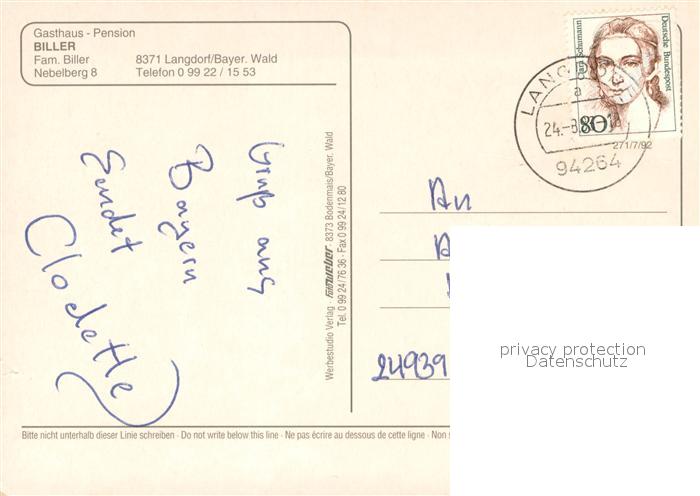 Gasthaus - Pension
BILLER
Fam. Biller 8371 Langdorf/Bayer. Wald
Nebelberg 8 Telefon 0 99 22 / 15 53
Gruß aus
Bayern
Sendet
Clodette
Werbestudio Verlag · 8373 Bodenmais/Bayer. Wald
Tel. 0 99 24/76 36 · Fax 0 99 24/12 80
Clara Schumann
Deutsche Bundespost
80
LANGDORF
a
24.-8.
94264
271/7/92
An
24939
privacy protection
Datenschutz
Bitte nicht unterhalb dieser Linie schreiben · Do not write below this line · Ne pas écrire au dessous de cette ligne · Non s